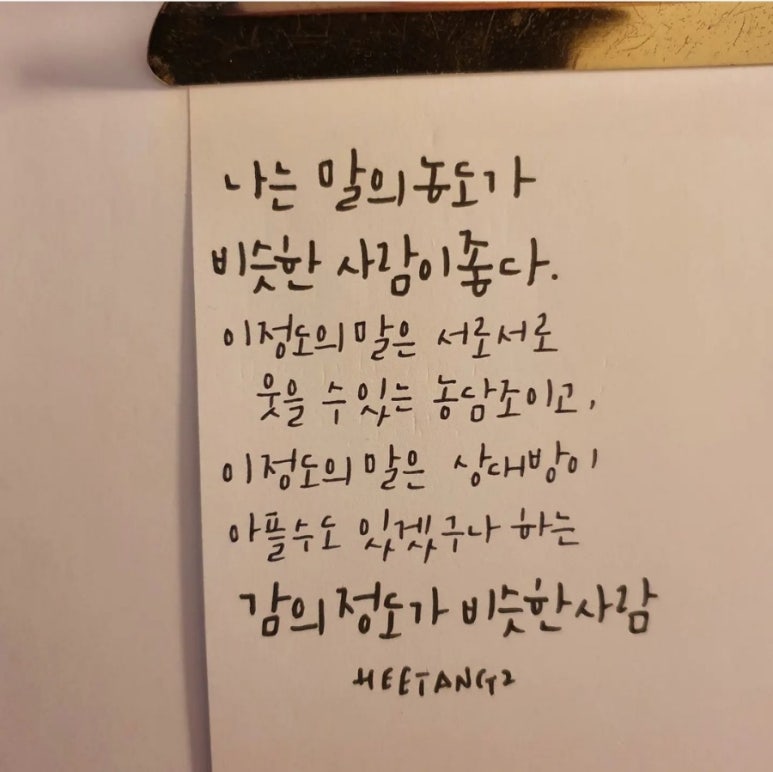 나는 말의 농도가
비슷한 사람이 좋다.
이정도의 말은 서로서로
웃을 수 있는 농담조이고,
이정도의 말은 상대방이
아플수도 있겠구나 하는
감의 정도가 비슷한 사람
HEETANG2